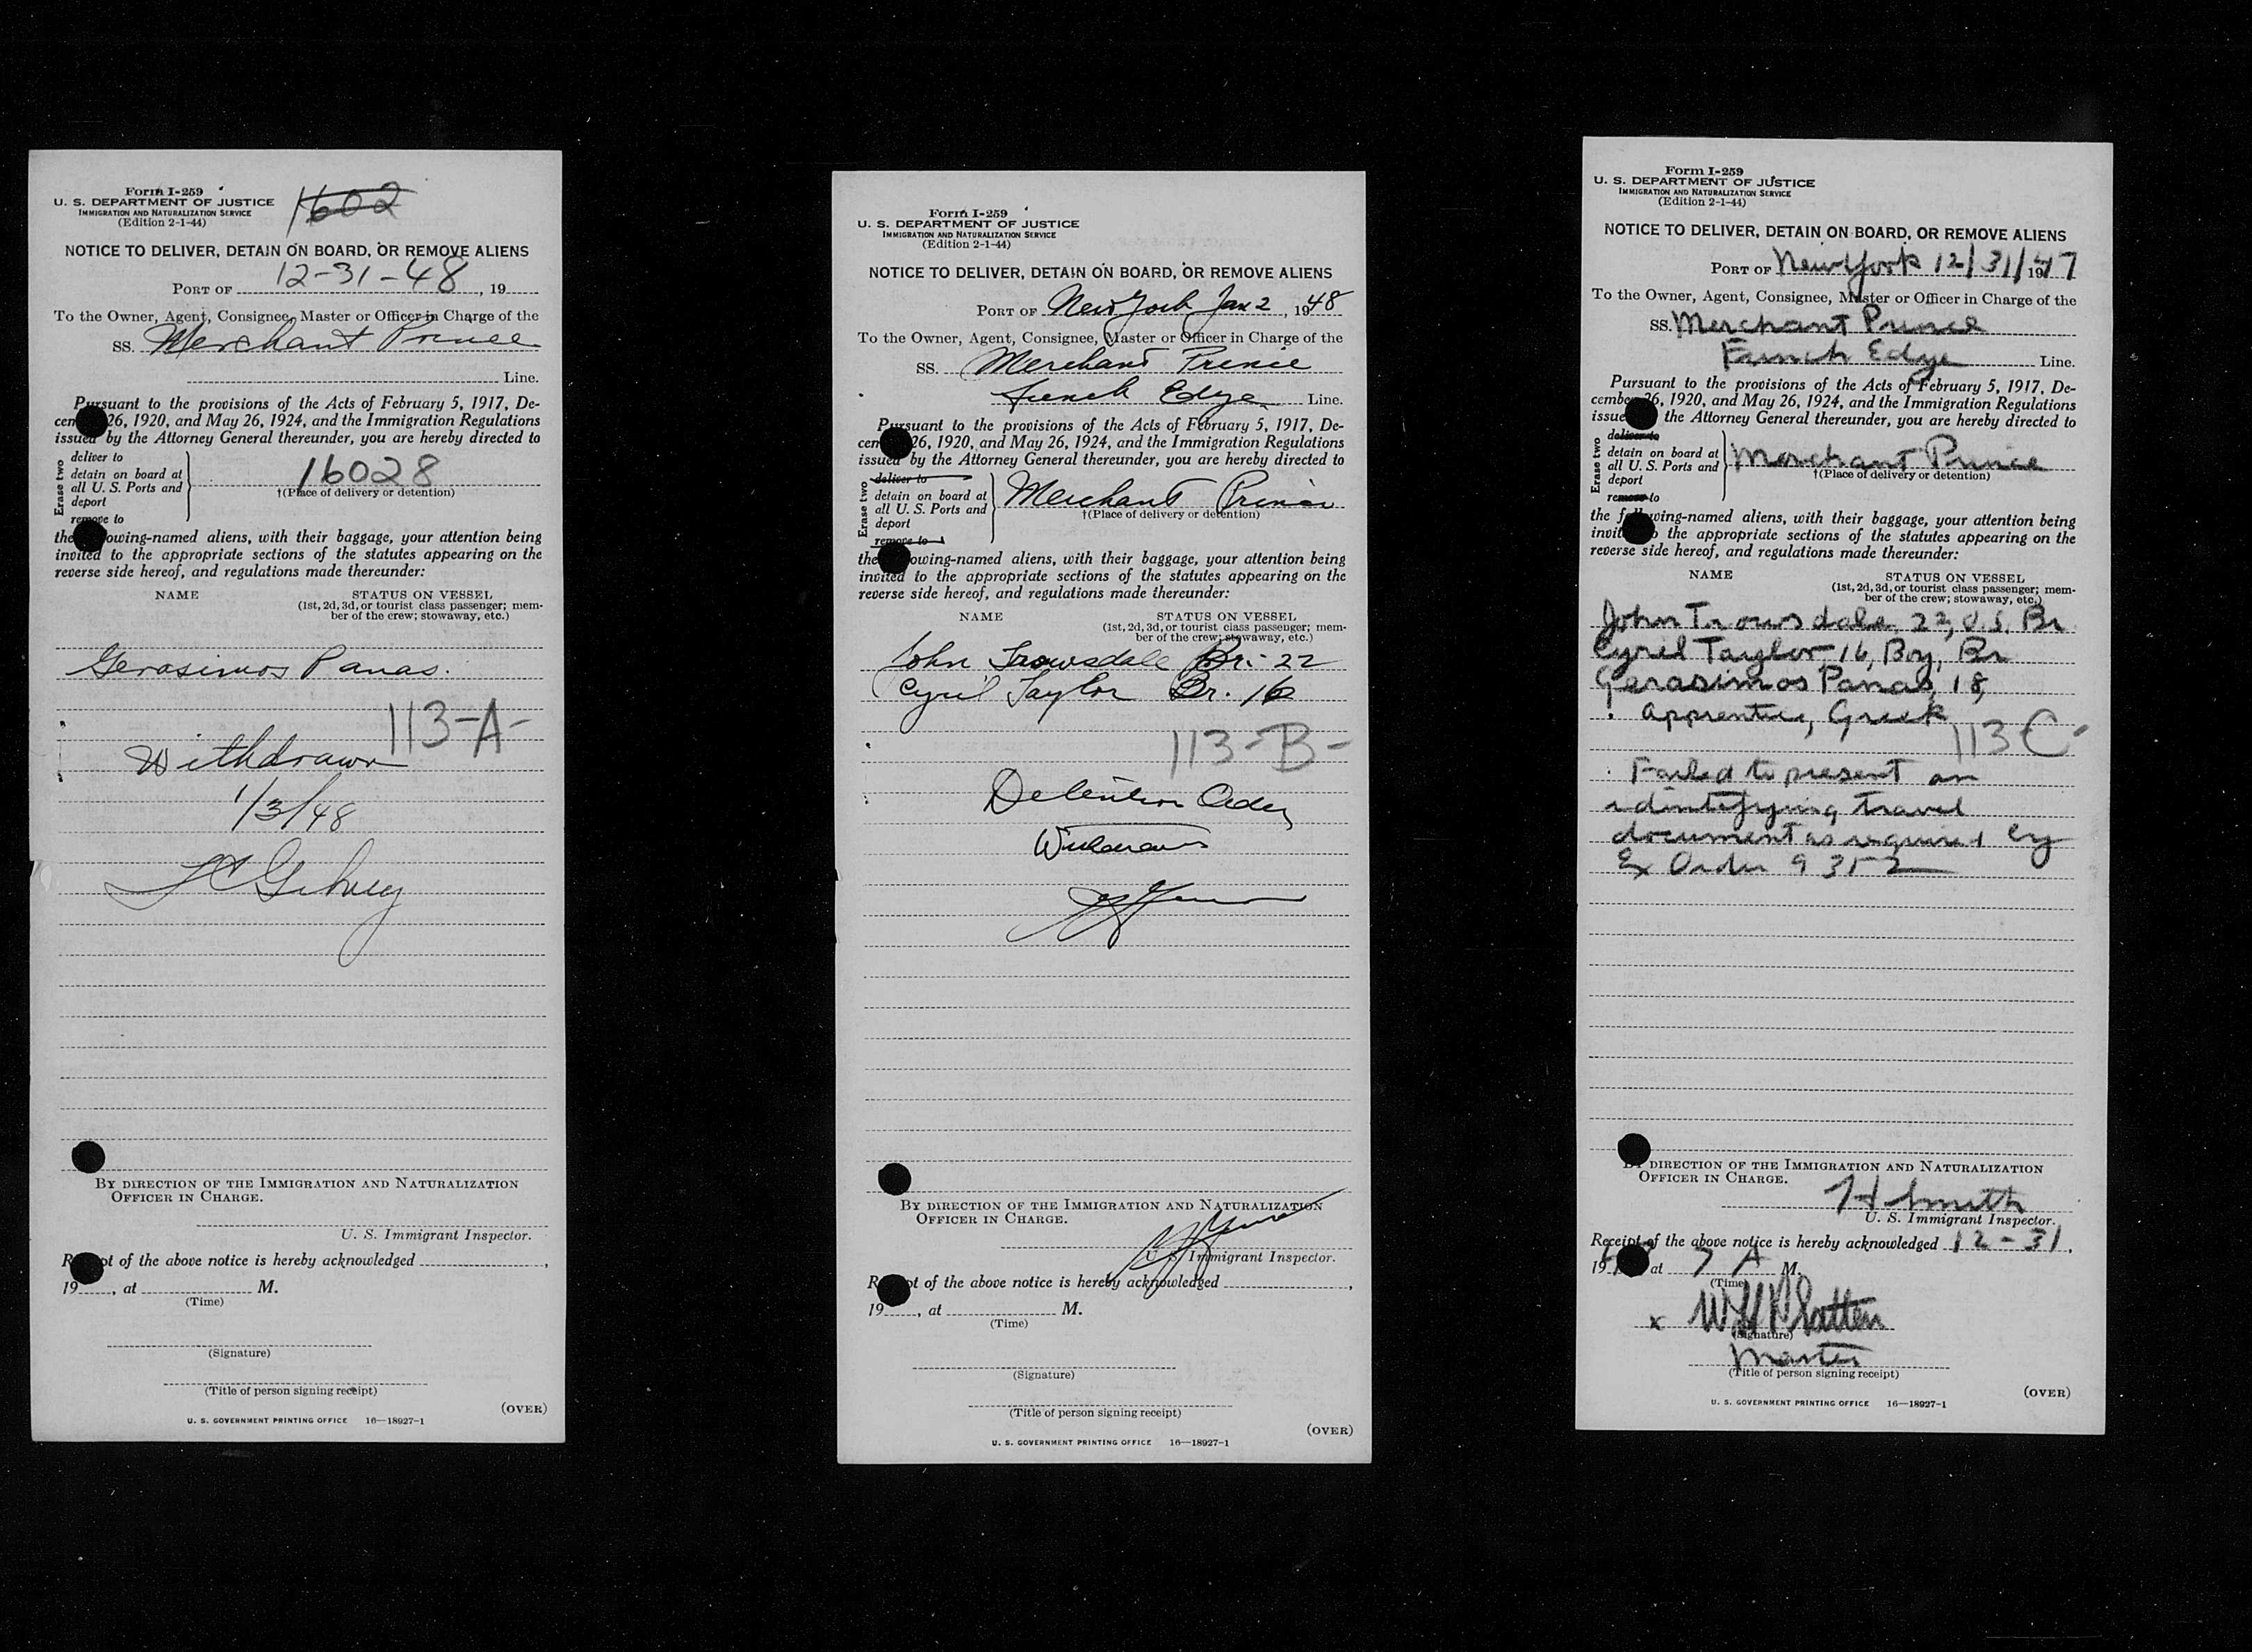 Form I-259
U. S. DEPARTMENT OF JUSTICE
IMMIGRATION AND NATURALIZATION SERVICE
(Edition 2-1-44)
1602
NOTICE TO DELIVER, DETAIN ON BOARD, OR REMOVE ALIENS
PORT OF 12-31-48, 19
To the Owner, Agent, Consignee, Master or Officer in Charge of the
SS. Merchant Prince
Line.
Pursuant to the provisions of the Acts of February 5, 1917, De-
cem 26, 1920, and May 26, 1924, and the Immigration Regulations
issued by the Attorney General thereunder, you are hereby directed to
Erase two
deliver to
detain on board at
all U. S. Ports and
deport
remove to
16028
†(Place of delivery or detention)
the owing-named aliens, with their baggage, your attention being
invited to the appropriate sections of the statutes appearing on the
reverse side hereof, and regulations made thereunder:
NAME
STATUS ON VESSEL
(1st, 2d, 3d, or tourist class passenger; mem-
ber of the crew; stowaway, etc.)
Gerasimos Panas.
113-A-
Withdrawn
1/3/48
BY DIRECTION OF THE IMMIGRATION AND NATURALIZATION
OFFICER IN CHARGE.
U. S. Immigrant Inspector.
R pt of the above notice is hereby acknowledged ,
19 , at M.
(Time)
(Signature)
(Title of person signing receipt)
(OVER)
U. S. GOVERNMENT PRINTING OFFICE 16—18927-1
Form I-259
U. S. DEPARTMENT OF JUSTICE
IMMIGRATION AND NATURALIZATION SERVICE
(Edition 2-1-44)
NOTICE TO DELIVER, DETAIN ON BOARD, OR REMOVE ALIENS
PORT OF New York Jan 2, 1948
To the Owner, Agent, Consignee, Master or Officer in Charge of the
SS. Merchant Prince
Edye Line.
Pursuant to the provisions of the Acts of February 5, 1917, De-
cem 26, 1920, and May 26, 1924, and the Immigration Regulations
issued by the Attorney General thereunder, you are hereby directed to
Erase two
deliver to
detain on board at
all U. S. Ports and
deport
remove to
Merchant Prince
†(Place of delivery or detention)
the owing-named aliens, with their baggage, your attention being
invited to the appropriate sections of the statutes appearing on the
reverse side hereof, and regulations made thereunder:
NAME
STATUS ON VESSEL
(1st, 2d, 3d, or tourist class passenger; mem-
ber of the crew; stowaway, etc.)
John Trowsdale Br. - 22
Cyril Taylor Br. 16
113-B-
Detention Order
Withdrawn
BY DIRECTION OF THE IMMIGRATION AND NATURALIZATION
OFFICER IN CHARGE.
U. S. Immigrant Inspector.
R pt of the above notice is hereby acknowledged ,
19 , at M.
(Time)
(Signature)
(Title of person signing receipt)
(OVER)
U. S. GOVERNMENT PRINTING OFFICE 16—18927-1
Form I-259
U. S. DEPARTMENT OF JUSTICE
IMMIGRATION AND NATURALIZATION SERVICE
(Edition 2-1-44)
NOTICE TO DELIVER, DETAIN ON BOARD, OR REMOVE ALIENS
PORT OF New York 12/31/1947
To the Owner, Agent, Consignee, Master or Officer in Charge of the
SS. Merchant Prince
Edye Line.
Pursuant to the provisions of the Acts of February 5, 1917, De-
cembe 26, 1920, and May 26, 1924, and the Immigration Regulations
issue the Attorney General thereunder, you are hereby directed to
Erase two
deliver to
detain on board at
all U. S. Ports and
deport
remove to
Merchant Prince
†(Place of delivery or detention)
the f wing-named aliens, with their baggage, your attention being
invit o the appropriate sections of the statutes appearing on the
reverse side hereof, and regulations made thereunder:
NAME
STATUS ON VESSEL
(1st, 2d, 3d, or tourist class passenger; mem-
ber of the crew; stowaway, etc.)
John Trowsdale, 22, O.S. Br
Cyril Taylor, 16, Boy, Br
Gerasimos Panas, 18,
Apprentice, Greek
113 C-
Failed to present an
identifying travel
document as required by
Ex Order 9352
BY DIRECTION OF THE IMMIGRATION AND NATURALIZATION
OFFICER IN CHARGE.
H Smith
U. S. Immigrant Inspector.
Receipt of the above notice is hereby acknowledged 12-31,
19 at 7 A M.
(Time)
x
(Signature)
Master
(Title of person signing receipt)
(OVER)
U. S. GOVERNMENT PRINTING OFFICE 16—18927-1